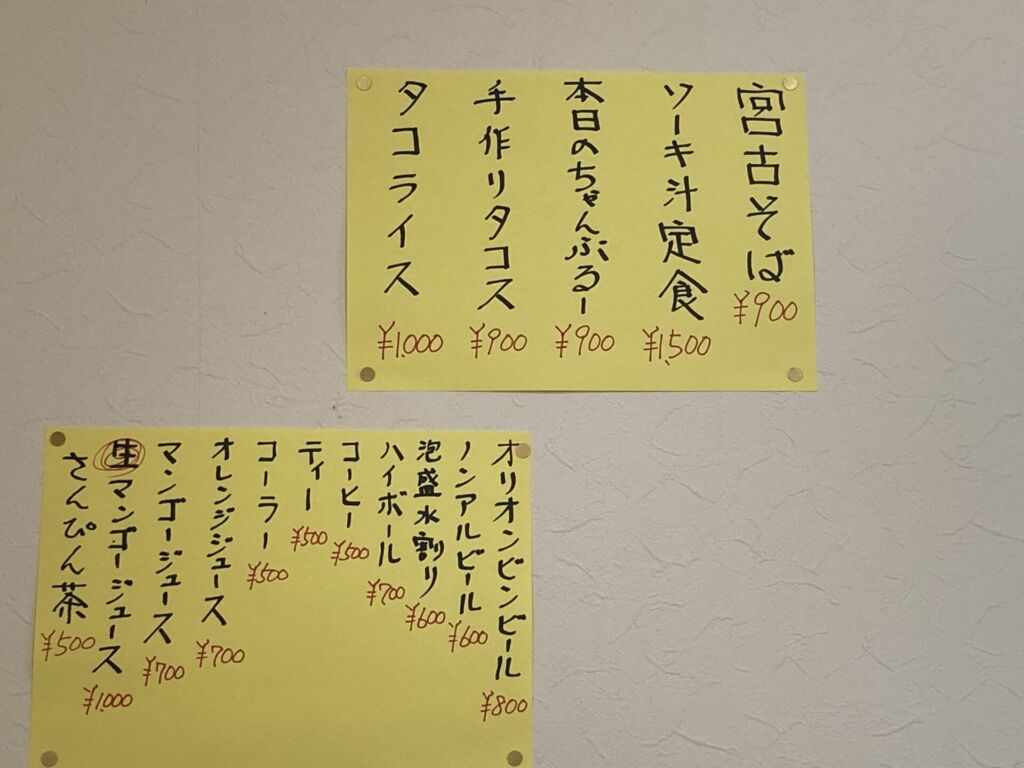 宮古そば
¥900
ソーキ汁定食
¥1,500
本日のちゃんぷるー
¥900
手作リタコス
¥900
タコライス
¥1,000
オリオンビンビール
¥800
ノンアルビール
¥600
泡盛水割り
¥600
ハイボール
¥700
コーヒー
¥500
ティー
¥500
コーラー
¥500
オレンジジュース
¥700
マンゴージュース
¥700
生マンゴージュース
¥1,000
さんぴん茶
¥500